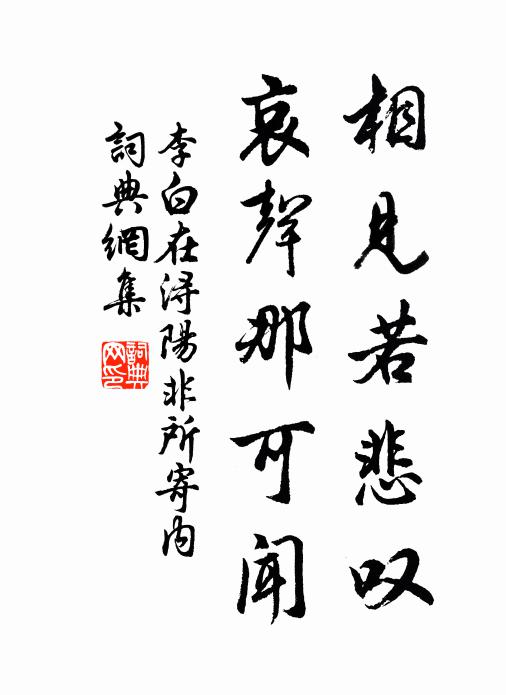 相見若悲叹
哀聲那可聞
李白在潯陽非所寄内
詞典網集
詞典网印